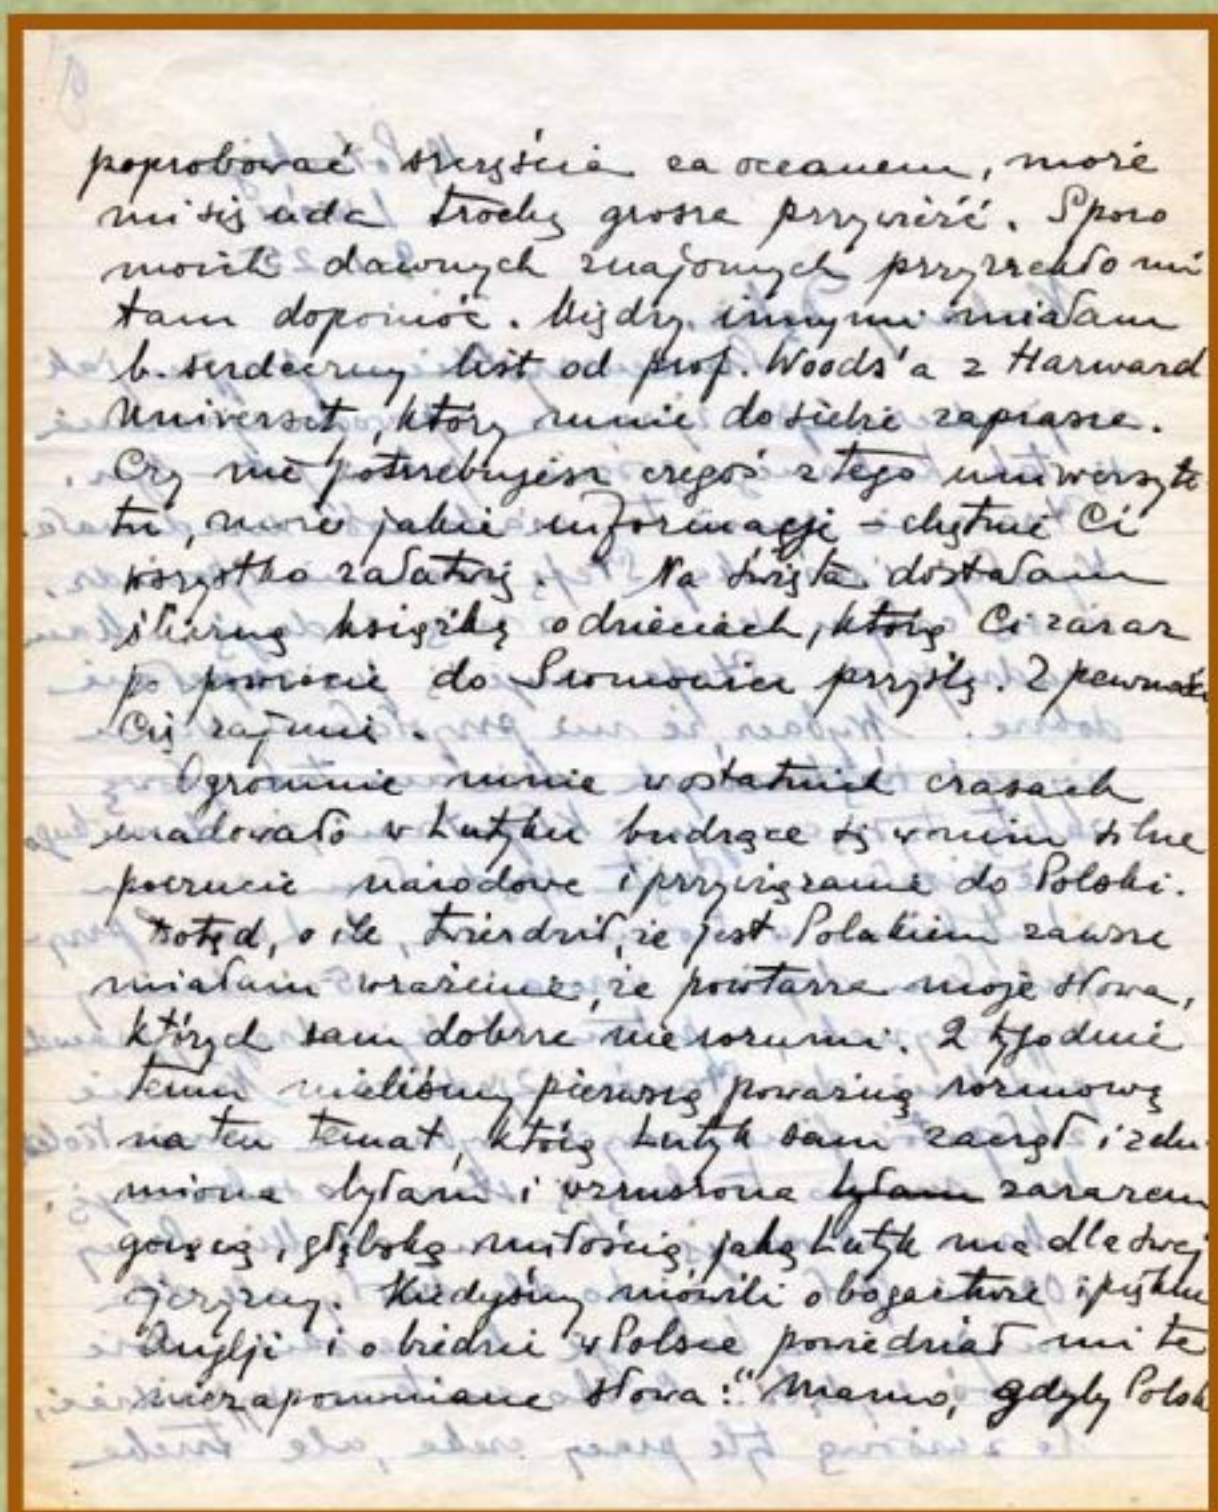 poprobować szczęścia za oceanem, może
mi się uda trochę grosza przywieźć. Sporo
moich dawnych znajomych przyrzekło mi
tam dopomóc. Między innymi miałam
b. serdeczny list od prof. Woods'a z Harward
Universit, który mnie do siebie zaprasza.
Czy nie potrzebujesz czegoś z tego uniwersyte-
tu, może jakie informacje – chętnie Ci
wszystko załatwię. Na święta dostałam
śliczną książkę o dzieciach, którą Ci zaraz
po powrocie do Sromowiec przyślę. Z pewnością
Cię zajmie.
Ogromnie mnie w ostatnich czasach
uradowało w Lutyku budzące się w nim silne
poczucie narodowe i przywiązanie do Polski.
Dotąd, o ile, twierdził, że jest Polakiem zawsze
miałam wrażenie, że powtarza moje słowa,
których sam dobrze nie rozumi. 2 tygodnie
temu mieliśmy pierwszą poważną rozmowę
na ten temat, którą Lutyk sam zaczął i zdu-
miona byłam i wzruszona byłam zarazem
gorącą, głęboką miłością jaką Lutyk ma dla swej
ojczyzny. Kiedyśmy mówili o bogactwie i pięknie
Anglji i o biedzie w Polsce powiedział mi te
niezapomniane słowa: "Mamo, gdyby Polsk